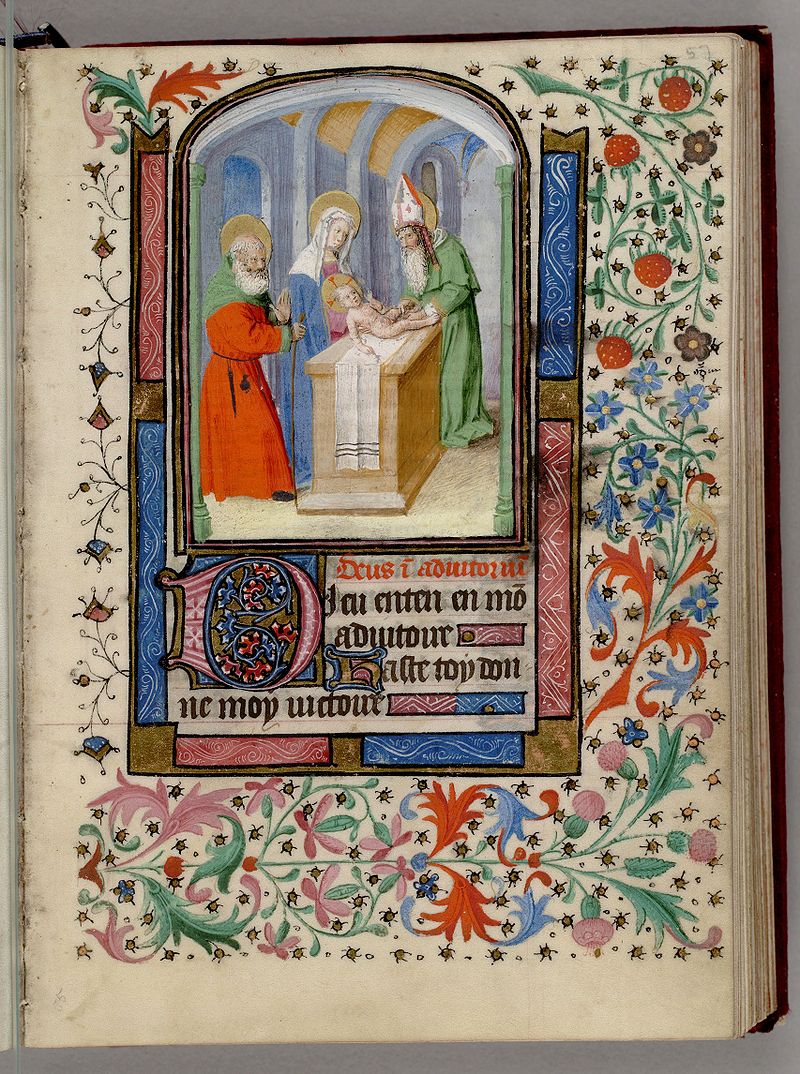 57
Deus ī adiutoriū
Dieu enten en mō
adiutoire
Haste toy don
ne moy uictoire